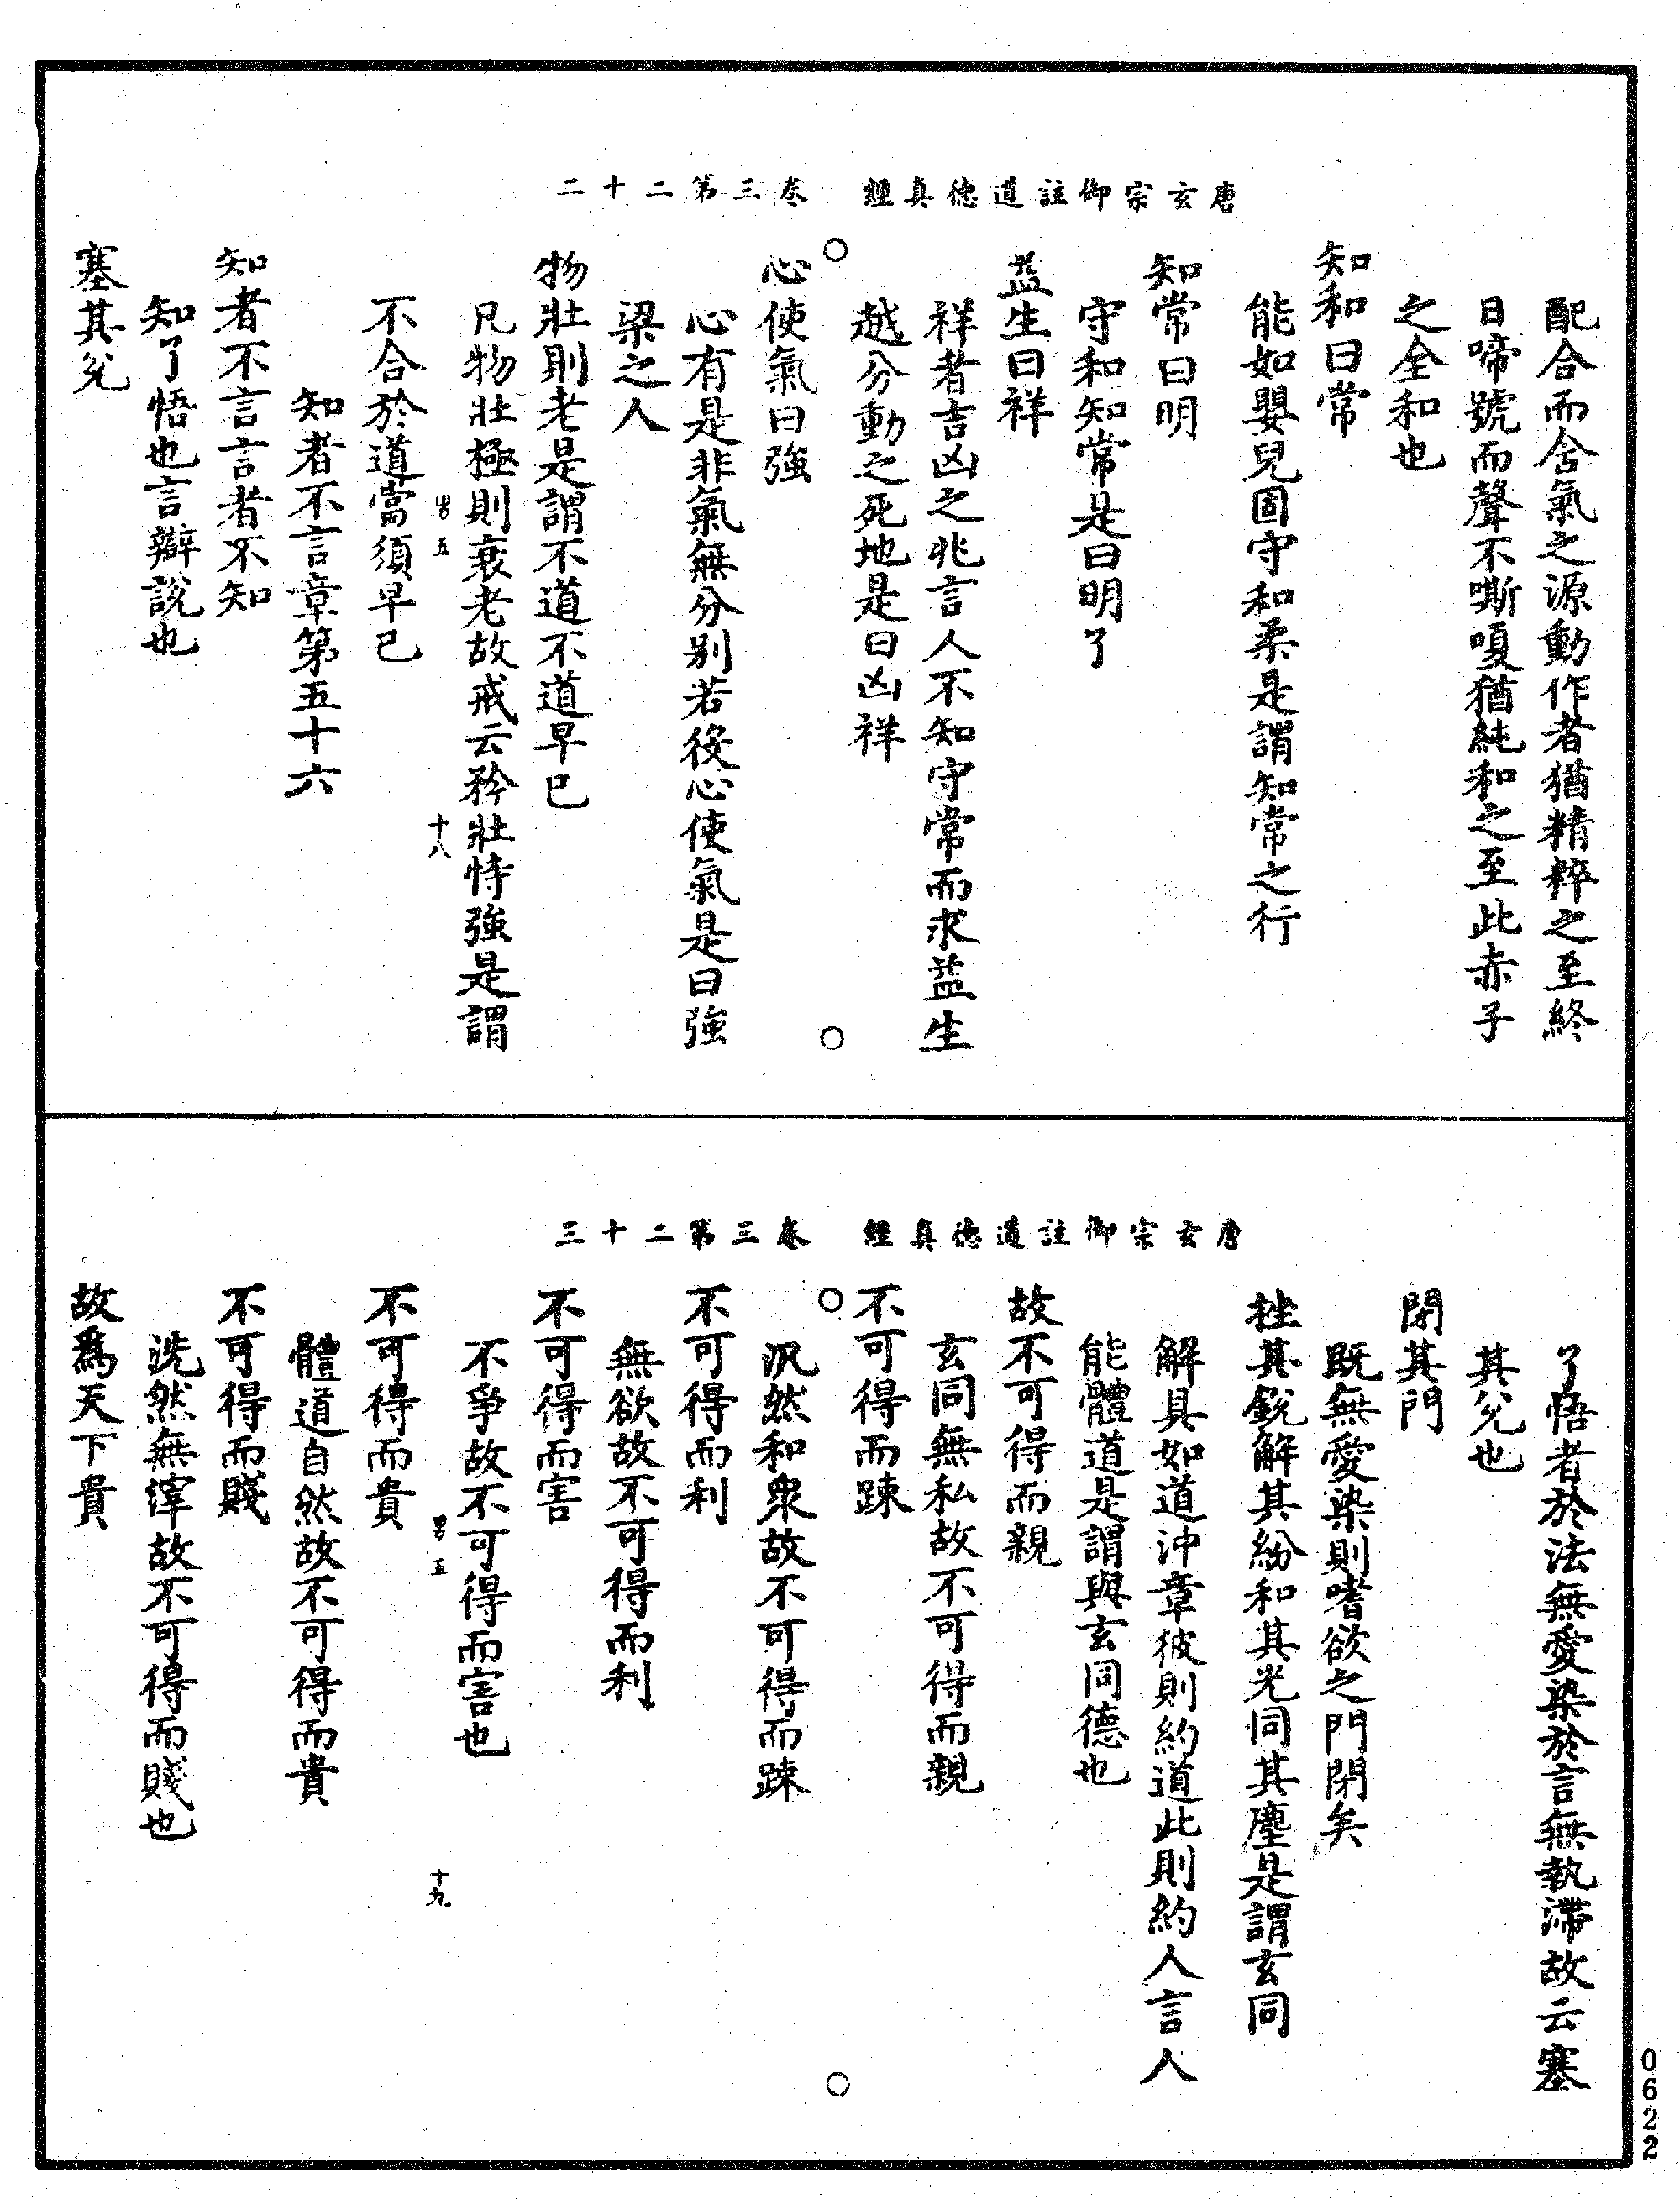 唐玄宗御註道德真經　卷三第二十二
配合而含氣之源動作者猶精粹之至終
日啼號而聲不嘶嗄猶純和之至此赤子
之全和也
知和曰常
能如嬰兒固守和柔是謂知常之行
知常曰明
守和知常是曰明了
益生曰祥
祥者吉凶之兆言人不知守常而求益生
越分動之死地是曰凶祥
心使氣曰強
心有是非氣無分別若役心使氣是曰強
梁之人
物壯則老是謂不道不道早已
凡物壯極則衰老故戒云矜壯恃強是謂
男五　十八
不合於道當須早已
知者不言章第五十六
知者不言言者不知
知了悟也言辯說也
塞其兌
唐玄宗御註道德真經　卷三第二十三
了悟者於法無愛染於言無執滯故云塞
其兌也
閉其門
既無愛染則嗜欲之門閉矣
挫其銳解其紛和其光同其塵是謂玄同
解具如道沖章彼則約道此則約人言人
能體道是謂與玄同德也
故不可得而親
玄同無私故不可得而親
不可得而踈
汎然和衆故不可得而踈
不可得而利
無欲故不可得而利
不可得而害
不爭故不可得而害也
男五　十九
不可得而貴
體道自然故不可得而貴
不可得而賤
洗然無滓故不可得而賤也
故爲天下貴
0622